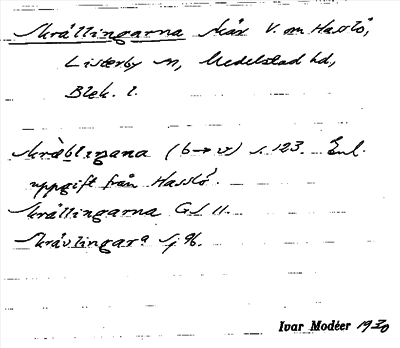 Skrällingarna skär V. om Hasslö,
Listerby sn, Medelstad hd,
Blek. l.
Skräblingana (b→v) s. 123. Enl.
uppgift från Hasslö.
Skrällingarna GS 11.
Skrävlingara Sj 96.
Ivar Modéer 1930